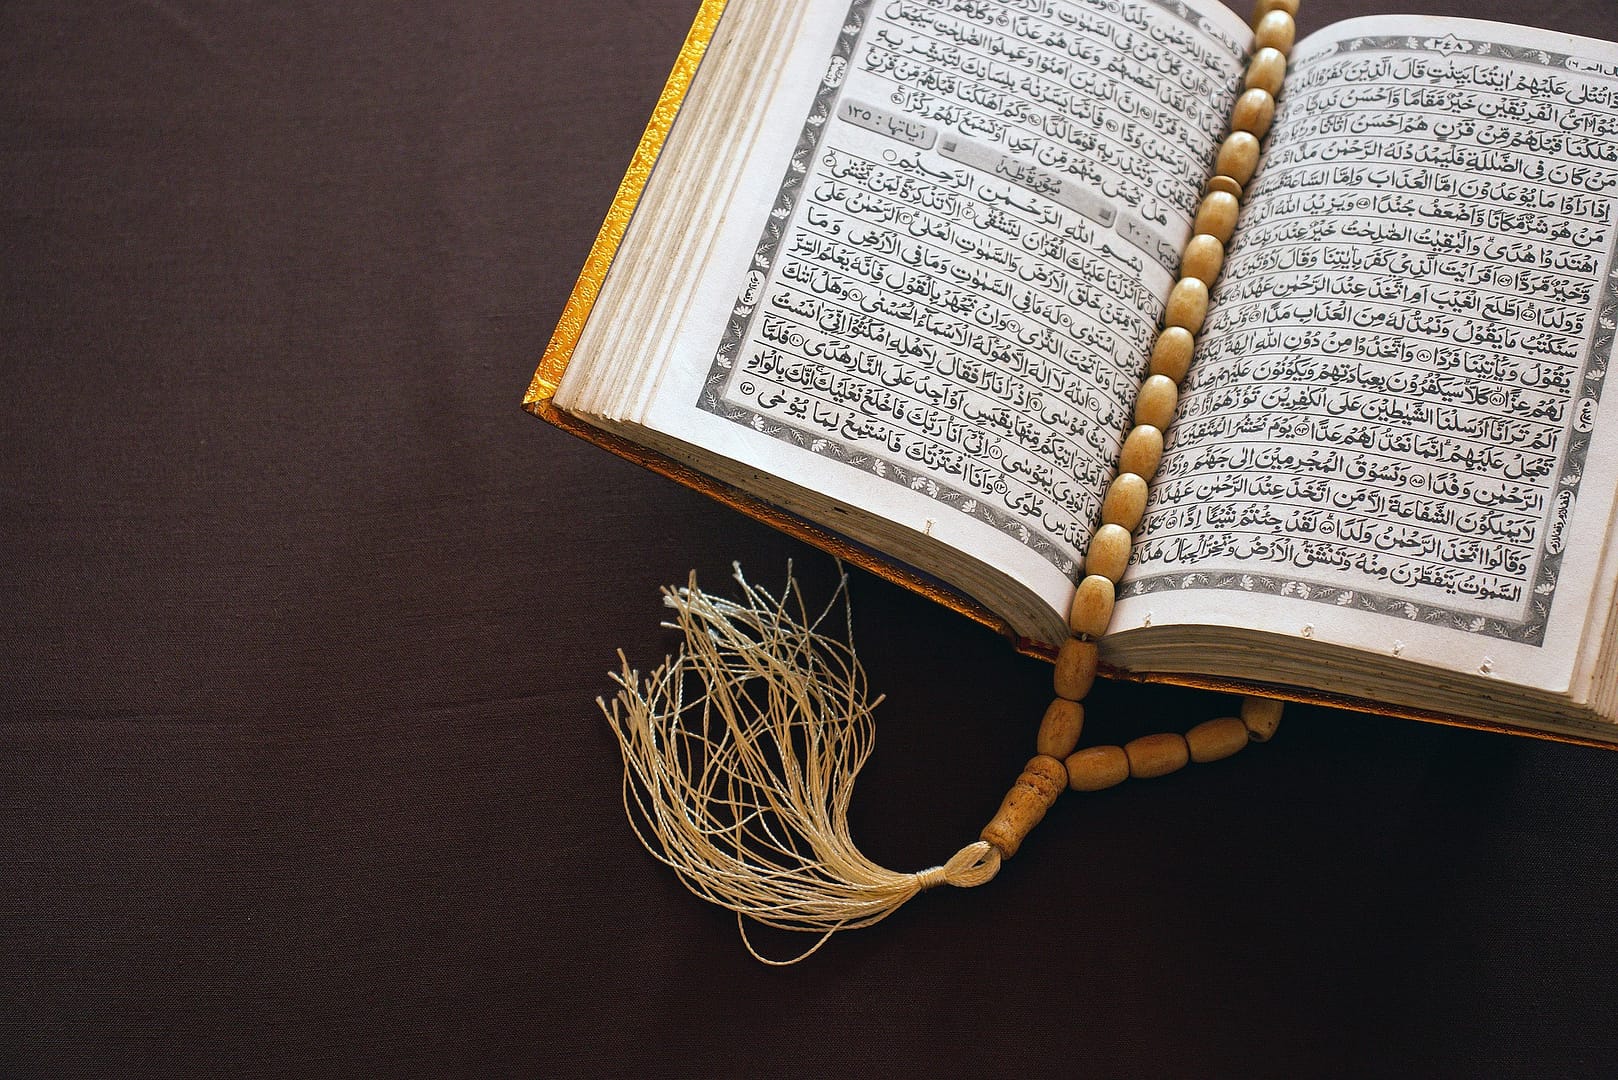 ٢٤٨
تُتْلٰى عَلَيْهِمْ اٰيٰتُنَا بَيِّنٰتٍ قَالَ الَّذِيْنَ كَفَرُوْا
اَيُّ الْفَرِيْقَيْنِ خَيْرٌ مَّقَامًا وَّاَحْسَنُ نَدِيًّا
اَهْلَكْنَا قَبْلَهُمْ مِّنْ قَرْنٍ هُمْ اَحْسَنُ اَثَاثًا
مَنْ كَانَ فِي الضَّلٰلَةِ فَلْيَمْدُدْ لَهُ الرَّحْمٰنُ مَدًّا
اِذَا رَاَوْا مَا يُوْعَدُوْنَ اِمَّا الْعَذَابَ وَاِمَّا السَّاعَةَ
مَنْ هُوَ شَرٌّ مَّكَانًا وَّاَضْعَفُ جُنْدًا ٧٥ وَيَزِيْدُ اللّٰهُ الَّذِيْنَ
اهْتَدَوْا هُدًى وَالْبٰقِيٰتُ الصّٰلِحٰتُ خَيْرٌ عِنْدَ رَبِّكَ
وَّخَيْرٌ مَّرَدًّا ٧٦ اَفَرَءَيْتَ الَّذِيْ كَفَرَ بِاٰيٰتِنَا وَقَالَ لَاُوْتَيَنَّ
وَّوَلَدًا ٧٧ اَطَّلَعَ الْغَيْبَ اَمِ اتَّخَذَ عِنْدَ الرَّحْمٰنِ عَهْدًا ٧٨
سَنَكْتُبُ مَا يَقُوْلُ وَنَمُدُّ لَهٗ مِنَ الْعَذَابِ مَدًّا ٧٩ وَّنَرِثُهٗ
يَقُوْلُ وَيَاْتِيْنَا فَرْدًا ٨٠ وَاتَّخَذُوْا مِنْ دُوْنِ اللّٰهِ اٰلِهَةً لِّيَكُوْنُوْا
لَهُمْ عِزًّا ٨١ كَلَّا سَيَكْفُرُوْنَ بِعِبَادَتِهِمْ وَيَكُوْنُوْنَ عَلَيْهِمْ ضِدًّا
اَلَمْ تَرَ اَنَّا اَرْسَلْنَا الشَّيٰطِيْنَ عَلَى الْكٰفِرِيْنَ تَؤُزُّهُمْ اَزًّا
تَعْجَلْ عَلَيْهِمْ اِنَّمَا نَعُدُّ لَهُمْ عَدًّا ٨٤ يَوْمَ نَحْشُرُ الْمُتَّقِيْنَ
الرَّحْمٰنِ وَفْدًا ٨٥ وَّنَسُوْقُ الْمُجْرِمِيْنَ اِلٰى جَهَنَّمَ وِرْدًا
لَا يَمْلِكُوْنَ الشَّفَاعَةَ اِلَّا مَنِ اتَّخَذَ عِنْدَ الرَّحْمٰنِ عَهْدًا
وَقَالُوا اتَّخَذَ الرَّحْمٰنُ وَلَدًا ٨٨ لَقَدْ جِئْتُمْ شَيْـًٔا اِدًّا ٨٩ تَكَادُ
السَّمٰوٰتُ يَتَفَطَّرْنَ مِنْهُ وَتَنْشَقُّ الْاَرْضُ وَتَخِرُّ الْجِبَالُ هَدًّا
دَعَوْا لِلرَّحْمٰنِ وَلَدًا
اِنْ كُلُّ مَنْ فِي السَّمٰوٰتِ وَالْاَرْضِ
لَقَدْ اَحْصٰىهُمْ وَعَدَّهُمْ عَدًّا ٩٤ وَكُلُّهُمْ اٰتِيْهِ
فَرْدًا ٩٥ اِنَّ الَّذِيْنَ اٰمَنُوْا وَعَمِلُوا الصّٰلِحٰتِ سَيَجْعَلُ
الرَّحْمٰنُ وُدًّا ٩٦ فَاِنَّمَا يَسَّرْنٰهُ بِلِسَانِكَ لِتُبَشِّرَ بِهِ
وَتُنْذِرَ بِهٖ قَوْمًا لُّدًّا ٩٧ وَكَمْ اَهْلَكْنَا قَبْلَهُمْ مِّنْ قَرْنٍ
هَلْ تُحِسُّ مِنْهُمْ مِّنْ اَحَدٍ اَوْ تَسْمَعُ لَهُمْ رِكْزًا ٩٨
٢٠ سُوْرَةُ طٰهٰ اٰيَاتُهَا : ١٣٥
بِسْمِ اللّٰهِ الرَّحْمٰنِ الرَّحِيْمِ
مَآ اَنْزَلْنَا عَلَيْكَ الْقُرْاٰنَ لِتَشْقٰٓى ٢ اِلَّا تَذْكِرَةً لِّمَنْ يَّخْشٰى ٣
مِّمَّنْ خَلَقَ الْاَرْضَ وَالسَّمٰوٰتِ الْعُلٰى ٤ اَلرَّحْمٰنُ عَلَى
الْعَرْشِ اسْتَوٰى ٥ لَهٗ مَا فِي السَّمٰوٰتِ وَمَا فِي الْاَرْضِ وَمَا
بَيْنَهُمَا وَمَا تَحْتَ الثَّرٰى ٦ وَاِنْ تَجْهَرْ بِالْقَوْلِ فَاِنَّهٗ يَعْلَمُ السِّرَّ
وَاَخْفٰى ٧ اَللّٰهُ لَآ اِلٰهَ اِلَّا هُوَ لَهُ الْاَسْمَآءُ الْحُسْنٰى ٨ وَهَلْ اَتٰىكَ
حَدِيْثُ مُوْسٰى ٩ اِذْ رَاٰ نَارًا فَقَالَ لِاَهْلِهِ امْكُثُوْٓا اِنِّيْٓ اٰنَسْتُ
نَارًا لَّعَلِّيْٓ اٰتِيْكُمْ مِّنْهَا بِقَبَسٍ اَوْ اَجِدُ عَلَى النَّارِ هُدًى ١٠ فَلَمَّآ
اَتٰىهَا نُوْدِيَ يٰمُوْسٰى ١١ اِنِّيْٓ اَنَا رَبُّكَ فَاخْلَعْ نَعْلَيْكَ اِنَّكَ بِالْوَادِ
الْمُقَدَّسِ طُوًى ١٢ وَاَنَا اخْتَرْتُكَ فَاسْتَمِعْ لِمَا يُوْحٰى ١٣